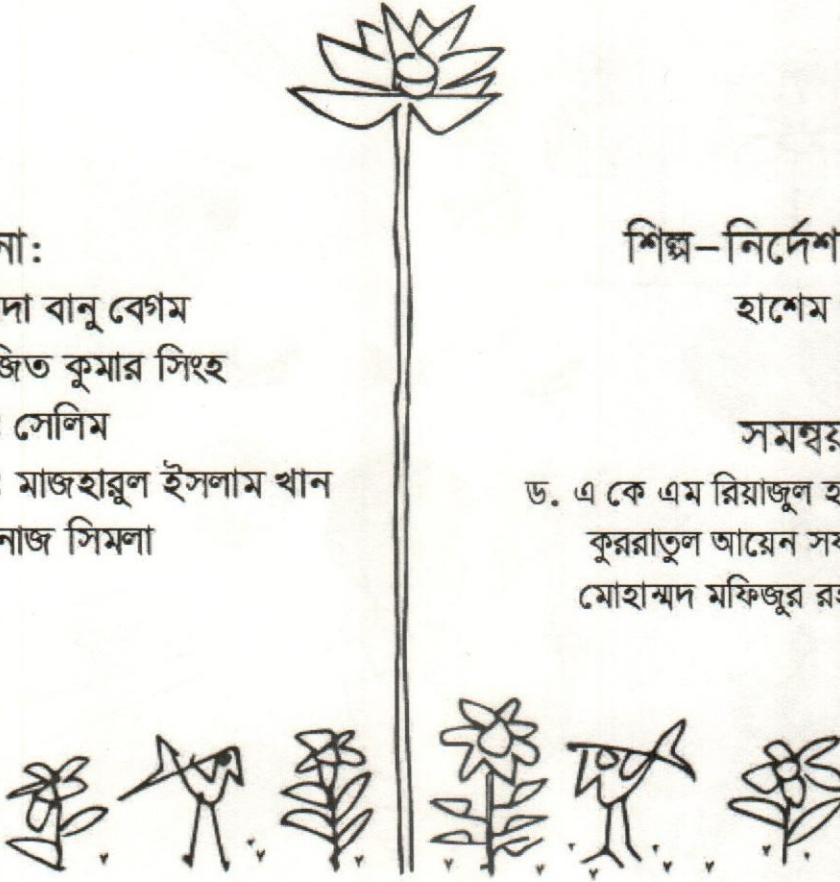 না:
দা বানু বেগম
জিত কুমার সিংহ
: সেলিম
: মাজহারুল ইসলাম খান
নাজ সিমলা
শিল্প-নির্দেশ
হাশেম
সমন্বয়
ড. এ কে এম রিয়াজুল হ
কুররাতুল আয়েন সফ
মোহাম্মদ মফিজুর রহ